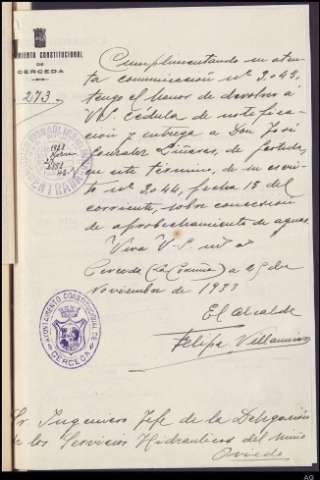 MIENTO CONSTITUCIONAL
DE
CERCEDA
273.
Cumplimentando su aten-
ta comunicación nº 2.043,
tengo el honor de devolver á
V.S. Cédula de notifica-
ción y entrega a Don José
González Liñares, de
en este término, de su escri-
to nº 2.044, fecha 18 del
corriente, sobre concesión
de aprobechamiento de aguas.
Viva V.S. mˢ aˢ
Cerceda (La Coruña) a 25 de
Noviembre de 1933
El Alcalde
Felipe Villamisar
AYUNTAMIENTO CONSTITUCIONAL DE
CERCEDA
Sr. Ingeniero Jefe de la Delegación
de los Servicios Hidraulicos del Miño
Oviedo